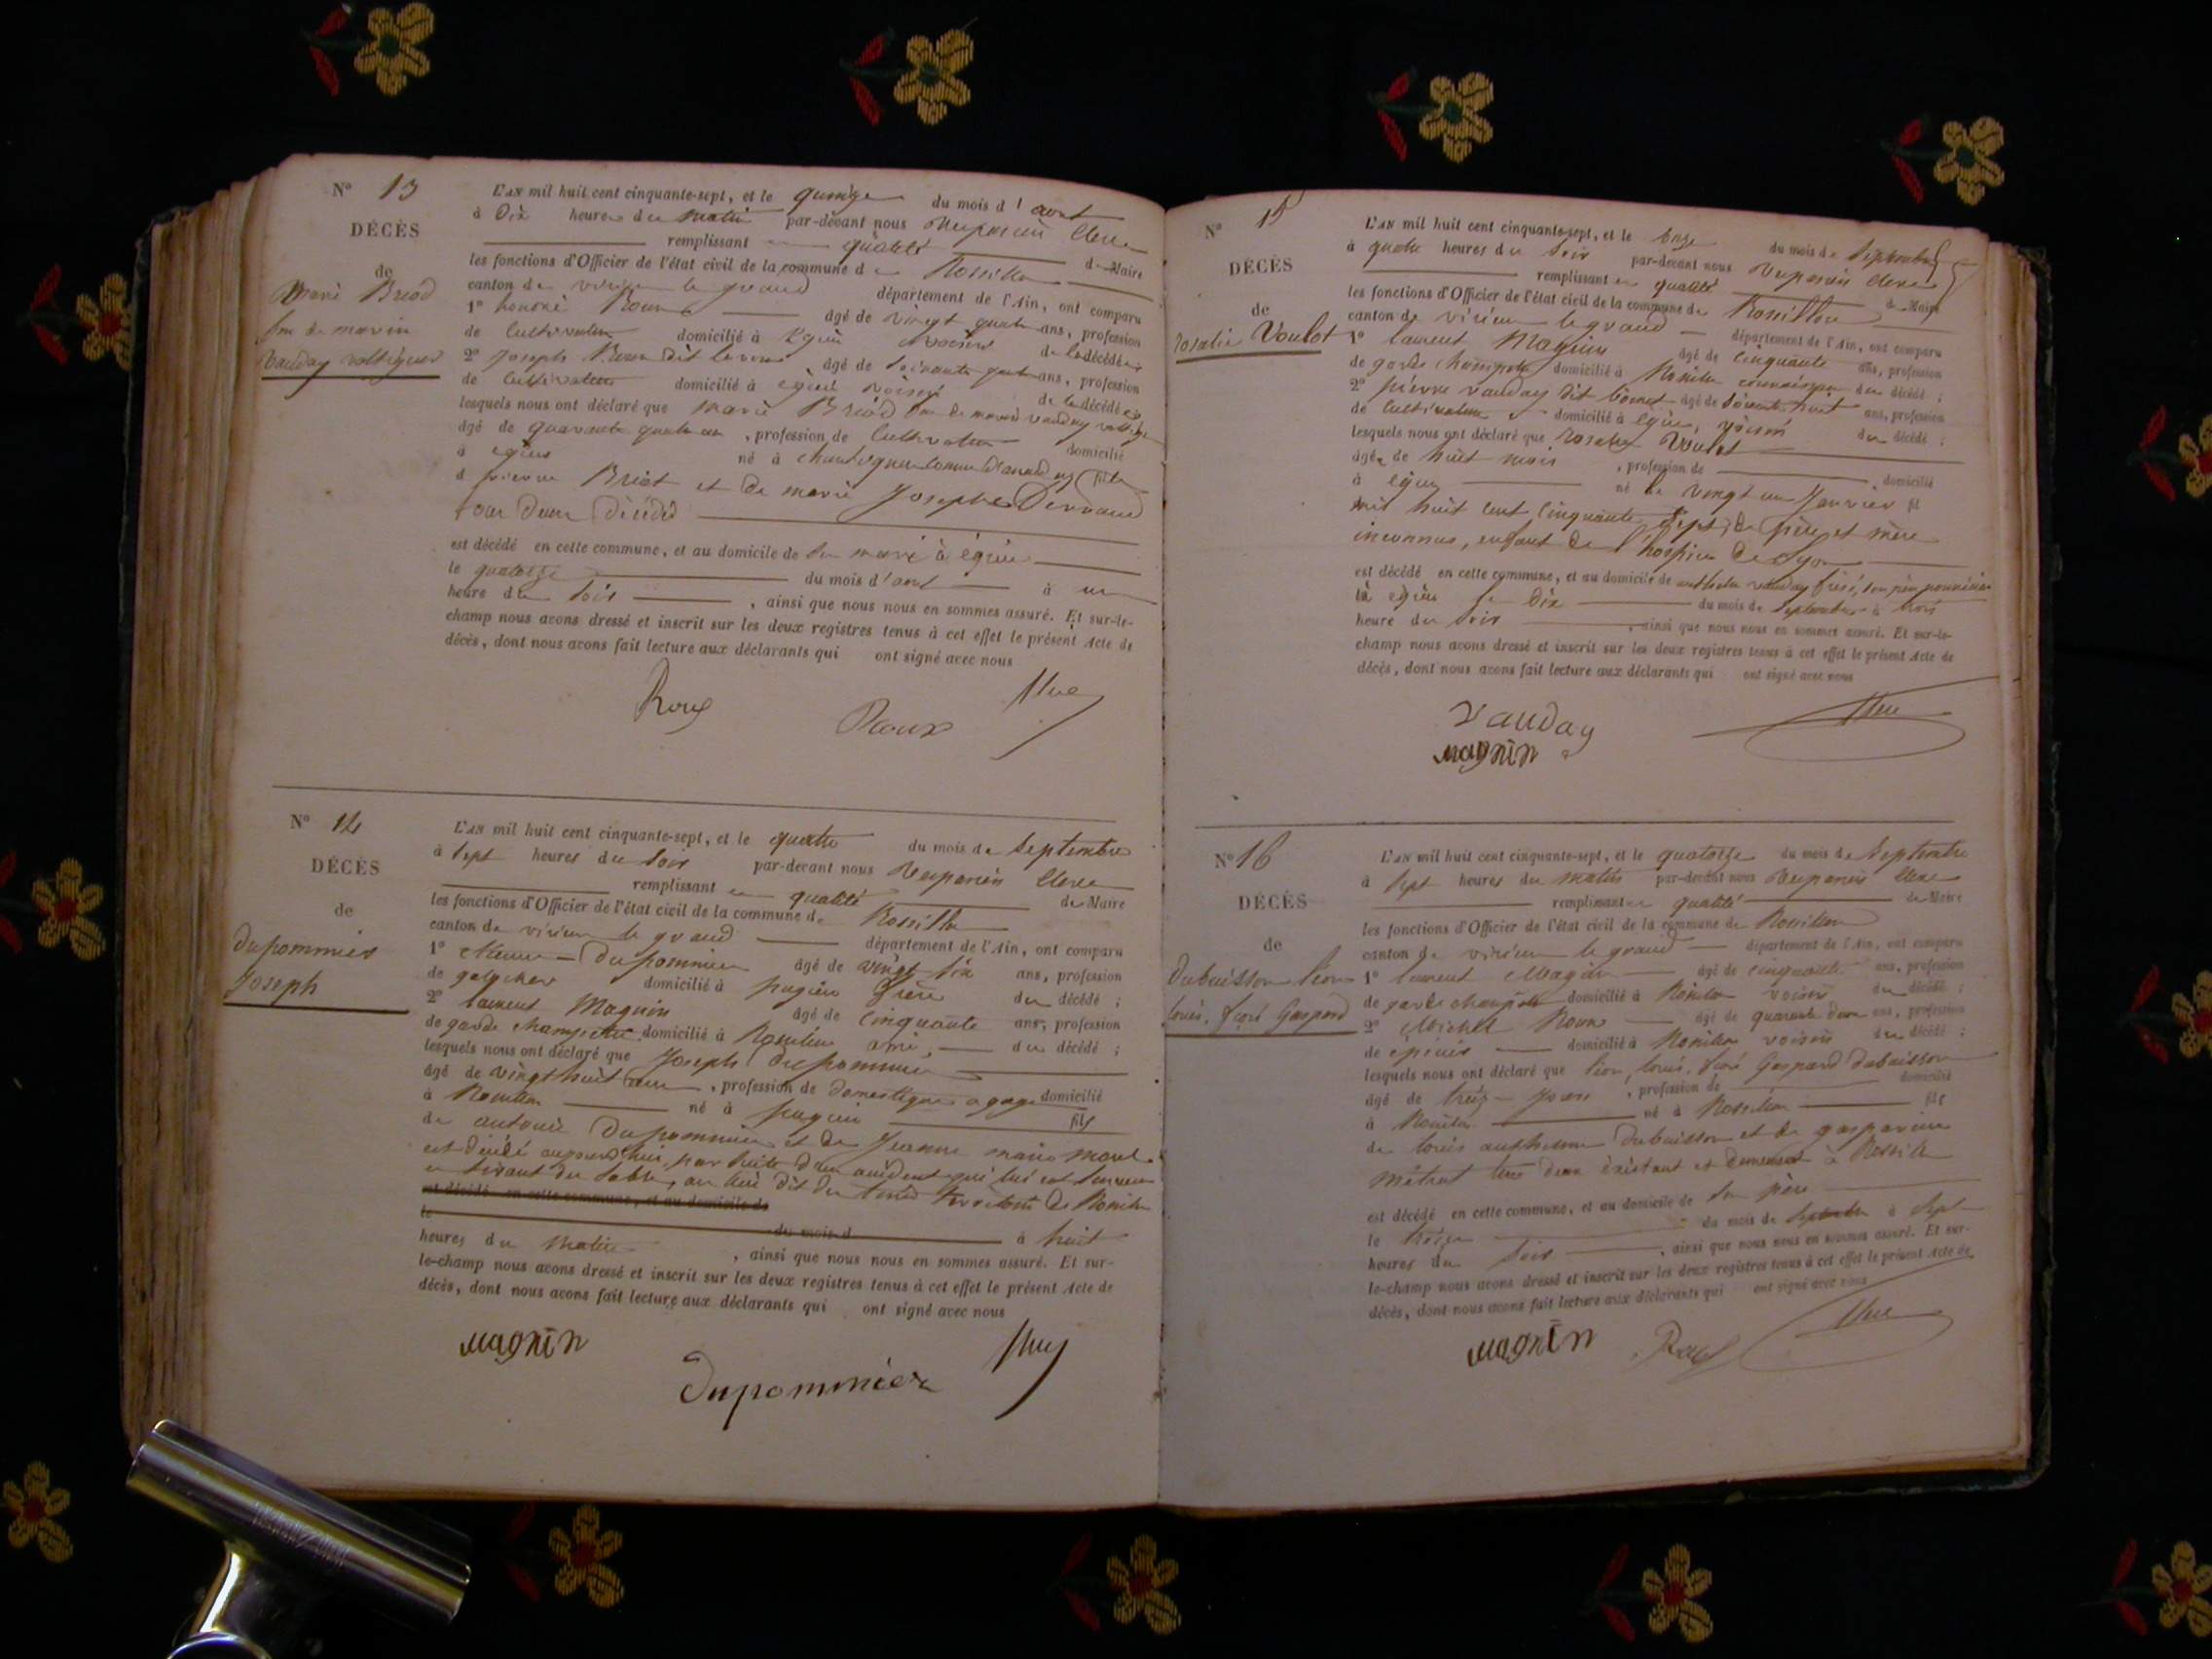 N° 13
DÉCÈS
de
Marie Briod
fme de marin
Vauday voltigeur
L'AN mil huit cent cinquante-sept, et le quinze du mois d'aout
à Dix heures du matin par-devant nous Clerc
remplissant qualité de Maire
les fonctions d'Officier de l'état civil de la commune de Rossillon
canton de virieu le grand département de l'Ain, ont comparu
1° honoré Roux âgé de vingt quatre ans, profession
de cultivateur domicilié à Egieu voisin de la décédée
2° Joseph Roux dit âgé de soixante quatre ans, profession
de cultivateur domicilié à egieu voisin de la décédée
lesquels nous ont déclaré que marie Briod fme de marin vauday
âgé de quarante quatre ans, profession de cultivateur domicilié
à egieu né à fille
de pierre Briot et de marie Josephe
tous deux Décédés
est décédé en cette commune, et au domicile de son mari à égieu
le quatorze du mois d'aout à une
heure du soir, ainsi que nous nous en sommes assuré. Et sur-le-
champ nous avons dressé et inscrit sur les deux registres tenus à cet effet le présent Acte de
décès, dont nous avons fait lecture aux déclarants qui ont signé avec nous
Roux Roux Clerc
N° 14
DÉCÈS
de
Dupommier
Joseph
L'AN mil huit cent cinquante-sept, et le quatre du mois de Septembre
à Sept heures du soir par-devant nous Clerc
remplissant en qualité de Maire
les fonctions d'Officier de l'état civil de la commune de Rossillon
canton de virieu le grand département de l'Ain, ont comparu
1° Dupommier âgé de vingt six ans, profession
de domicilié à pugieu frère du décédé ;
2° laurent Magnin âgé de Cinquante ans, profession
de garde champetre domicilié à Rossillon ami, du décédé ;
lesquels nous ont déclaré que Joseph Dupommier
âgé de vingt huit ans, profession de domestique a gage domicilié
à Rossillon né à pugieu fils
de antoine Dupommier et de Jeanne marie morel
est décédé aujourd'hui par suite d'un accident qui lui est survenu
en tirant du sable, au lieu dit du territoire de Rossillon
est décédé en cette commune, et au domicile de
le du mois d à huit
heures du matin, ainsi que nous nous en sommes assuré. Et sur-
le-champ nous avons dressé et inscrit sur les deux registres tenus à cet effet le présent Acte de
décès, dont nous avons fait lecture aux déclarants qui ont signé avec nous
Magnin Clerc
Dupommier
N° 15
DÉCÈS
de
rosalie Voulot
L'AN mil huit cent cinquante-sept, et le onze du mois de Septembre
à quatre heures du soir par-devant nous Clerc
remplissant en qualité de Maire
les fonctions d'Officier de l'état civil de la commune de Rossillon
canton de virieu le grand département de l'Ain, ont comparu
1° laurent Magnin âgé de cinquante ans, profession
de garde champetre domicilié à Rossillon du décédé ;
2° pierre vauday dit âgé de soixante huit ans, profession
de cultivateur domicilié à Egieu, voisin du décédé ;
lesquels nous ont déclaré que rosalie Voulot
âgée de huit mois, profession de domicilié
à egieu né le vingt un Janvier fil
mil huit cent cinquante sept, de père et mère
inconnus, enfant de l'hospice de Lyon
est décédé en cette commune, et au domicile de anthelme vauday son père nourricier
à égieu le Dix du mois de Septembre à trois
heure du soir, ainsi que nous nous en sommes assuré. Et sur-le-
champ nous avons dressé et inscrit sur les deux registres tenus à cet effet le présent Acte de
décès, dont nous avons fait lecture aux déclarants qui ont signé avec nous
Vauday Clerc
Magnin
N° 16
DÉCÈS
de
Dubuisson Léon
louis, Gaspard
L'AN mil huit cent cinquante-sept, et le quatorze du mois de Septembre
à Sept heures du matin par-devant nous Clerc
remplissant en qualité de Maire
les fonctions d'Officier de l'état civil de la commune de Rossillon
canton de virieu le grand département de l'Ain, ont comparu
1° laurent Magnin âgé de cinquante ans, profession
de garde champetre domicilié à Rossillon voisin du décédé ;
2° Michel Roux âgé de quarante deux ans, profession
de épicier domicilié à Rossillon voisin du décédé ;
lesquels nous ont déclaré que léon, louis, Gaspard Dubuisson
âgé de treize jours, profession de domicilié
à Rossillon né à Rossillon fils
de louis anthelme Dubuisson et de gasparine
métral tous deux existant et demeurant à Rossillon
est décédé en cette commune, et au domicile de son père
le treize du mois de Septembre à Sept
heures du soir, ainsi que nous nous en sommes assuré. Et sur-
le-champ nous avons dressé et inscrit sur les deux registres tenus à cet effet le présent Acte de
décès, dont nous avons fait lecture aux déclarants qui ont signé avec nous
Magnin Roux Clerc